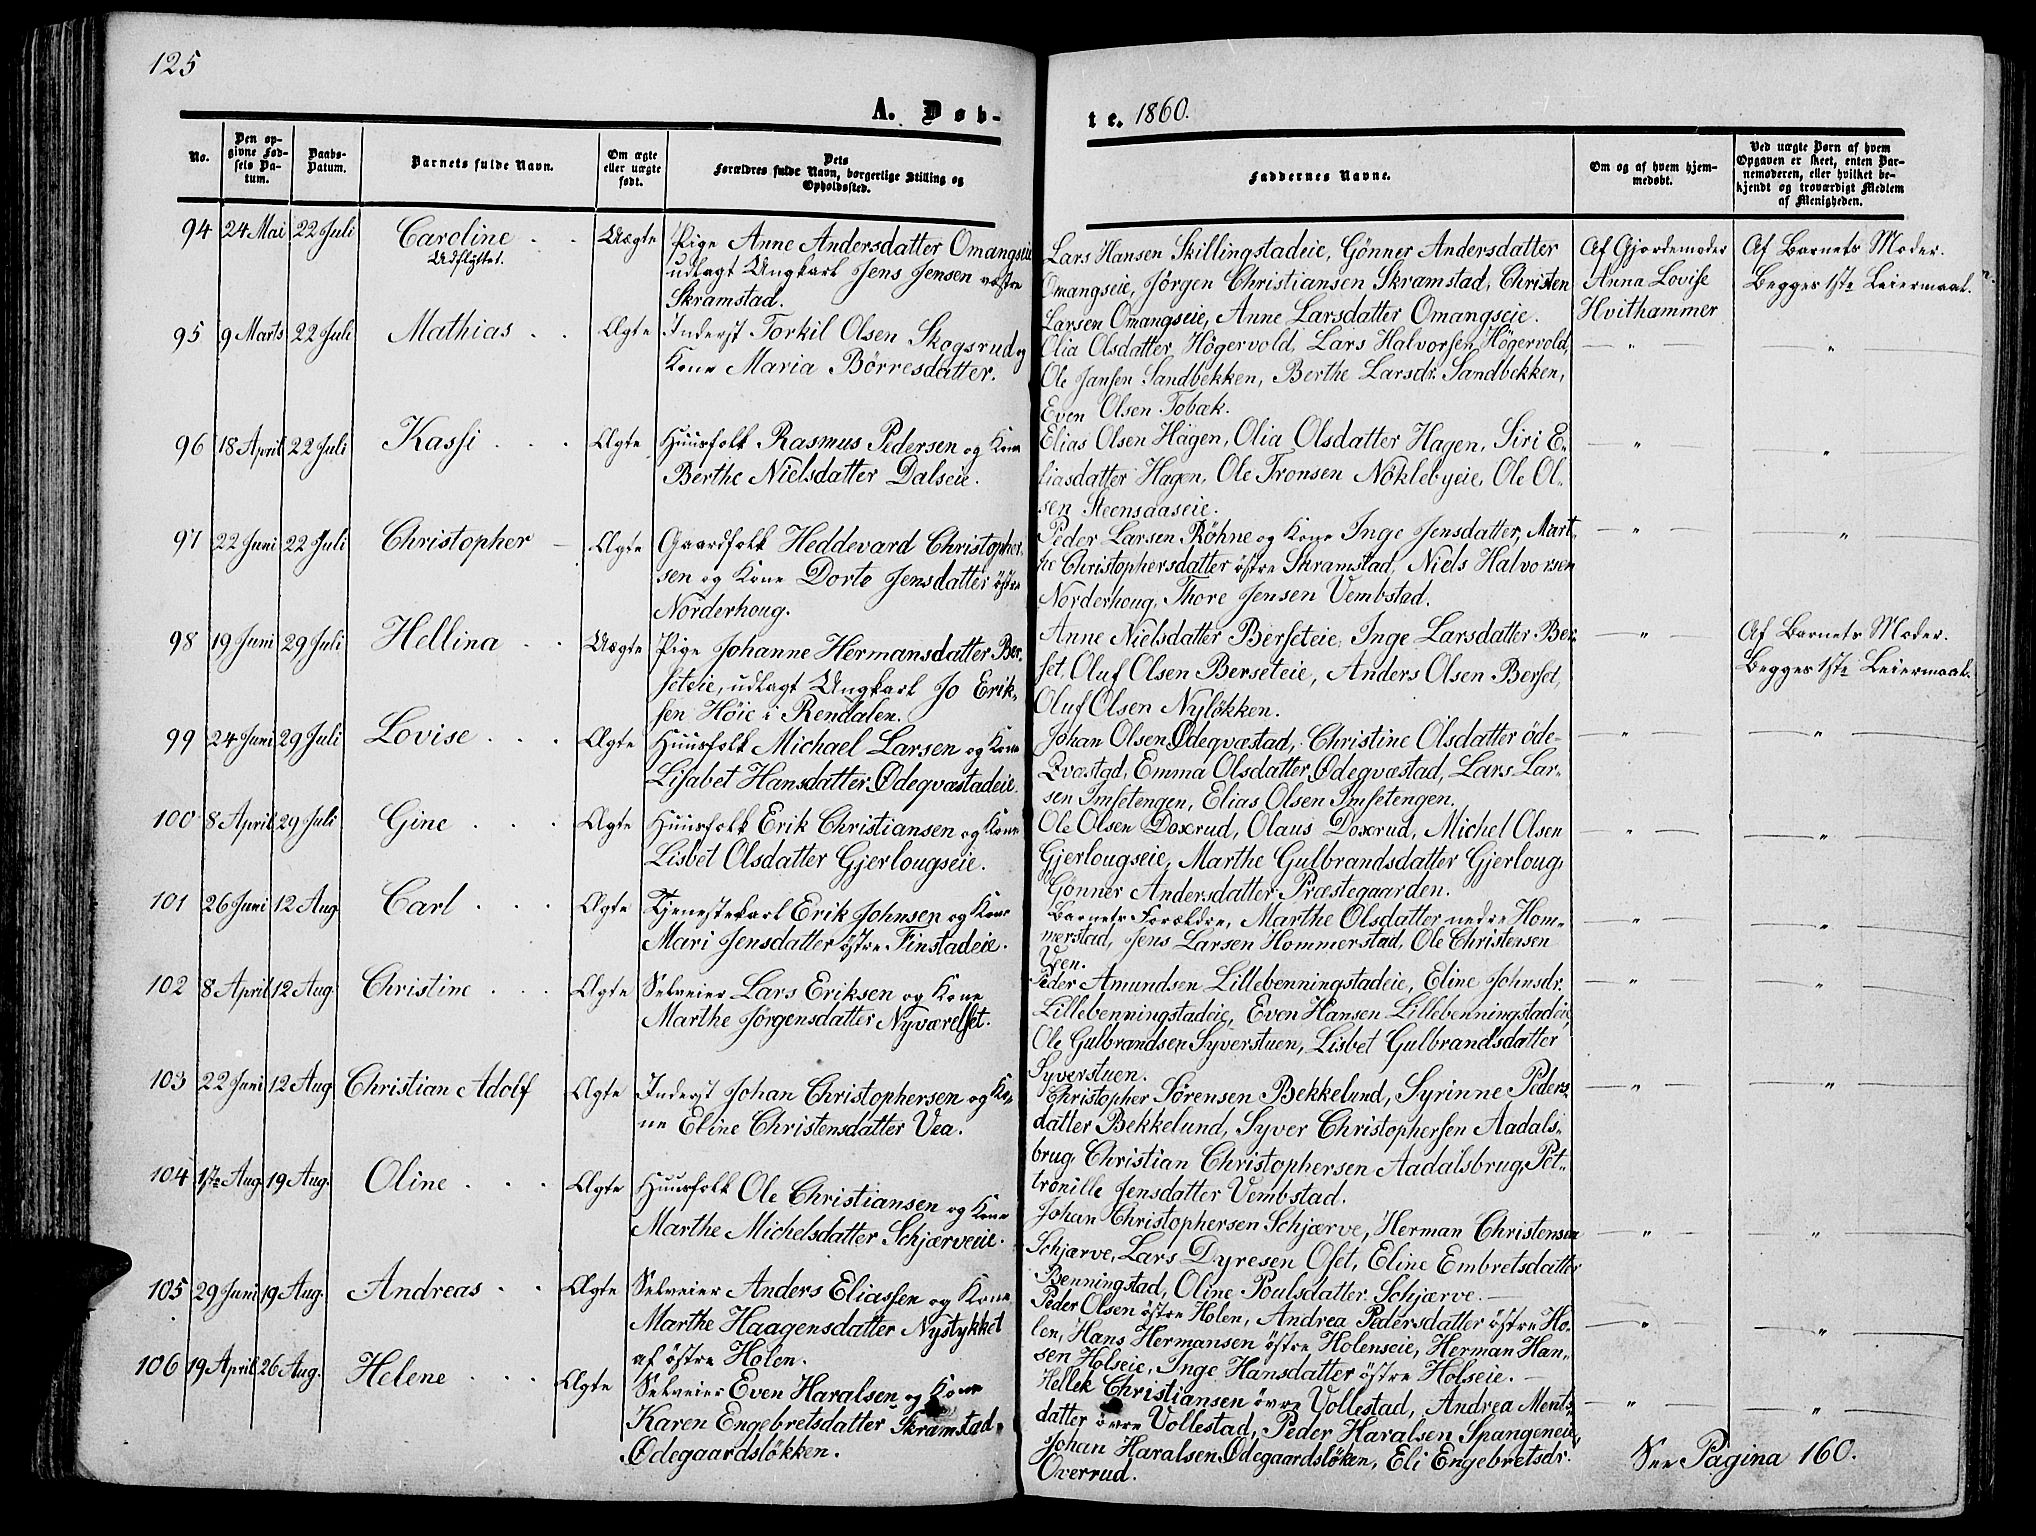 125
A. Døb-
te. 1860.
No.
Den op-
givne Fød-
sels Da-
tum.
Daabs-
Datum.
Barnets fulde Navn.
Om ægte
eller uægte
født.
Dets
Forældres fulde Navn, borgerlige Stilling og
Opholdssted.
Faddernes Navne.
Om og af hvem hjem-
medøbt.
Ved uægte Børn af hvem
Opgaven er skeet, enten Bar-
nemoderen, eller hvilket be-
kjendt og troværdigt Medlem
af Menigheden.
94 24 Mai 22 Juli Caroline Uægte Pige Anne Andersdatter Omangseie
Udflyttet. udlagt Ungkarl Jens Jensen vestre
Skramstad.
Lars Hansen Skillingstadeie, Gönner Andersdatter
Omangseie, Jörgen Christiansen Skramstad, Christen
Larsen Omangseie, Anne Larsdatter Omangseie.
Af Gjordemoder
Anna Lovise
Hvithammer
Af Barnets Moder.
Begges 1ste Leiermaal.
95 9 Marts 22 Juli Mathias Ægte Inderst Torkil Olsen Skogsrud og
Kone Maria Börresdatter.
Olia Olsdatter Högervold, Lars Halvorsen Högervold,
Ole Jansen Sandbekken, Berthe Larsdr. Sandbekken,
Even Olsen Tobæk.
— " — — " —
96 18 April 22 Juli Kassi Ægte Huusfolk Rasmus Pedersen og Kone
Berthe Nielsdatter Dalseie.
Elias Olsen Hagen, Olia Olsdatter Hagen, Siri E-
liasdatter Hagen, Ole Tronsen Nöklebyeie, Ole Ol-
sen Steensaaseie.
— " — — " —
97 22 Juni 22 Juli Christopher Ægte Gaardfolk Heddevard Christopher-
sen og Kone Dorte Jensdatter östre
Norderhoug.
Peder Larsen Röhne og Kone Inge Jensdatter, Mart-
he Christophersdatter östre Skramstad, Niels Halvorsen
Norderhoug, Thore Jensen Vembstad.
— " — — " —
98 19 Juni 29 Juli Hellina Uægte Pige Johanne Hermansdatter Ber-
seteie, udlagt Ungkarl Jo Erik-
sen Höie i Rendalen.
Anne Nielsdatter Berseteie, Inge Larsdatter Ber-
set, Oluf Olsen Berseteie, Anders Olsen Berset,
Oluf Olsen Nylökken.
— " — Af Barnets Moder.
Begges 1ste Leiermaal.
99 24 Juni 29 Juli Lovise Ægte Huusfolk Michael Larsen og Kone
Lisabet Hansdatter Ödeqvæstadeie.
Johan Olsen Ödeqvæstad, Christine Olsdatter öde-
Qvæstad, Emma Olsdatter Ödeqvæstad, Lars Lar-
sen Imsetengen, Elias Olsen Imsetengen.
— " — — " —
100 8 April 29 Juli Gine Ægte Huusfolk Erik Christiansen og Kone
Lisbet Olsdatter Gjerlougseie.
Ole Olsen Doxrud, Olaus Doxrud, Michel Olsen
Gjerlougseie, Marthe Gulbrandsdatter Gjerloug,
Gönner Andersdatter Præstegaarden.
— " — — " —
101 26 Juni 12 Aug. Carl Ægte Tjenestekarl Erik Johnsen og Kone
Mari Jensdatter östre Finstadeie.
Barnets Forældre, Marthe Olsdatter nedre Hom-
merstad, Jens Larsen Hommerstad, Ole Christensen
Veen.
— " — — " —
102 8 April 12 Aug. Christine Ægte Selveier Lars Eriksen og Kone
Marthe Jörgensdatter Nyværelset.
Peder Amundsen Lillebenningstadeie, Eline Johnsdr.
Lillebenningstadeie, Even Hansen Lillebenningstadeie,
Ole Gulbrandsen Syverstuen, Lisbet Gulbrandsdatter
Syverstuen.
— " — — " —
103 22 Juni 12 Aug. Christian Adolf Ægte Inderst Johan Christophersen og Ko-
ne Eline Christensdatter Vea.
Christopher Sörensen Bekkelund, Syrinne Peders-
datter Bekkelund, Syver Christophersen Aadals-
brug, Christian Christophersen Aadalsbrug, Pet-
tronille Jensdatter Vembstad.
— " — — " —
104 1ste Aug. 19 Aug. Oline Ægte Huusfolk Ole Christiansen og Kone
Marthe Michelsdatter Schjærveeie.
Johan Christophersen Schjærve, Herman Christensen
Schjærve, Lars Dyresen Oset, Eline Embretsdatter
Benningstad, Oline Poulsdatter Schjærve.
— " — — " —
105 29 Juni 19 Aug. Andreas Ægte Selveier Anders Eliassen og Kone
Marthe Haagensdatter Nystykket
af östre Holen.
Peder Olsen östre Holen, Andrea Pedersdatter östre Ho-
len, Hans Hermansen östre Holenseie, Herman Han-
sen Holseie, Inge Hansdatter östre Holseie.
— " — — " —
106 19 April 26 Aug. Helene Ægte Selveier Even Haralsen og Kone
Karen Engebretsdatter Skramstad-
Ödegaardslökken.
Hellek Christiansen övre Vollestad, Andrea Ments-
datter övre Vollestad, Peder Haralsen Spangeneie,
Johan Haralsen Ödegaardslöken, Eli Engebretsdr.
Overrud.
— " — — " —
See Pagina 160.